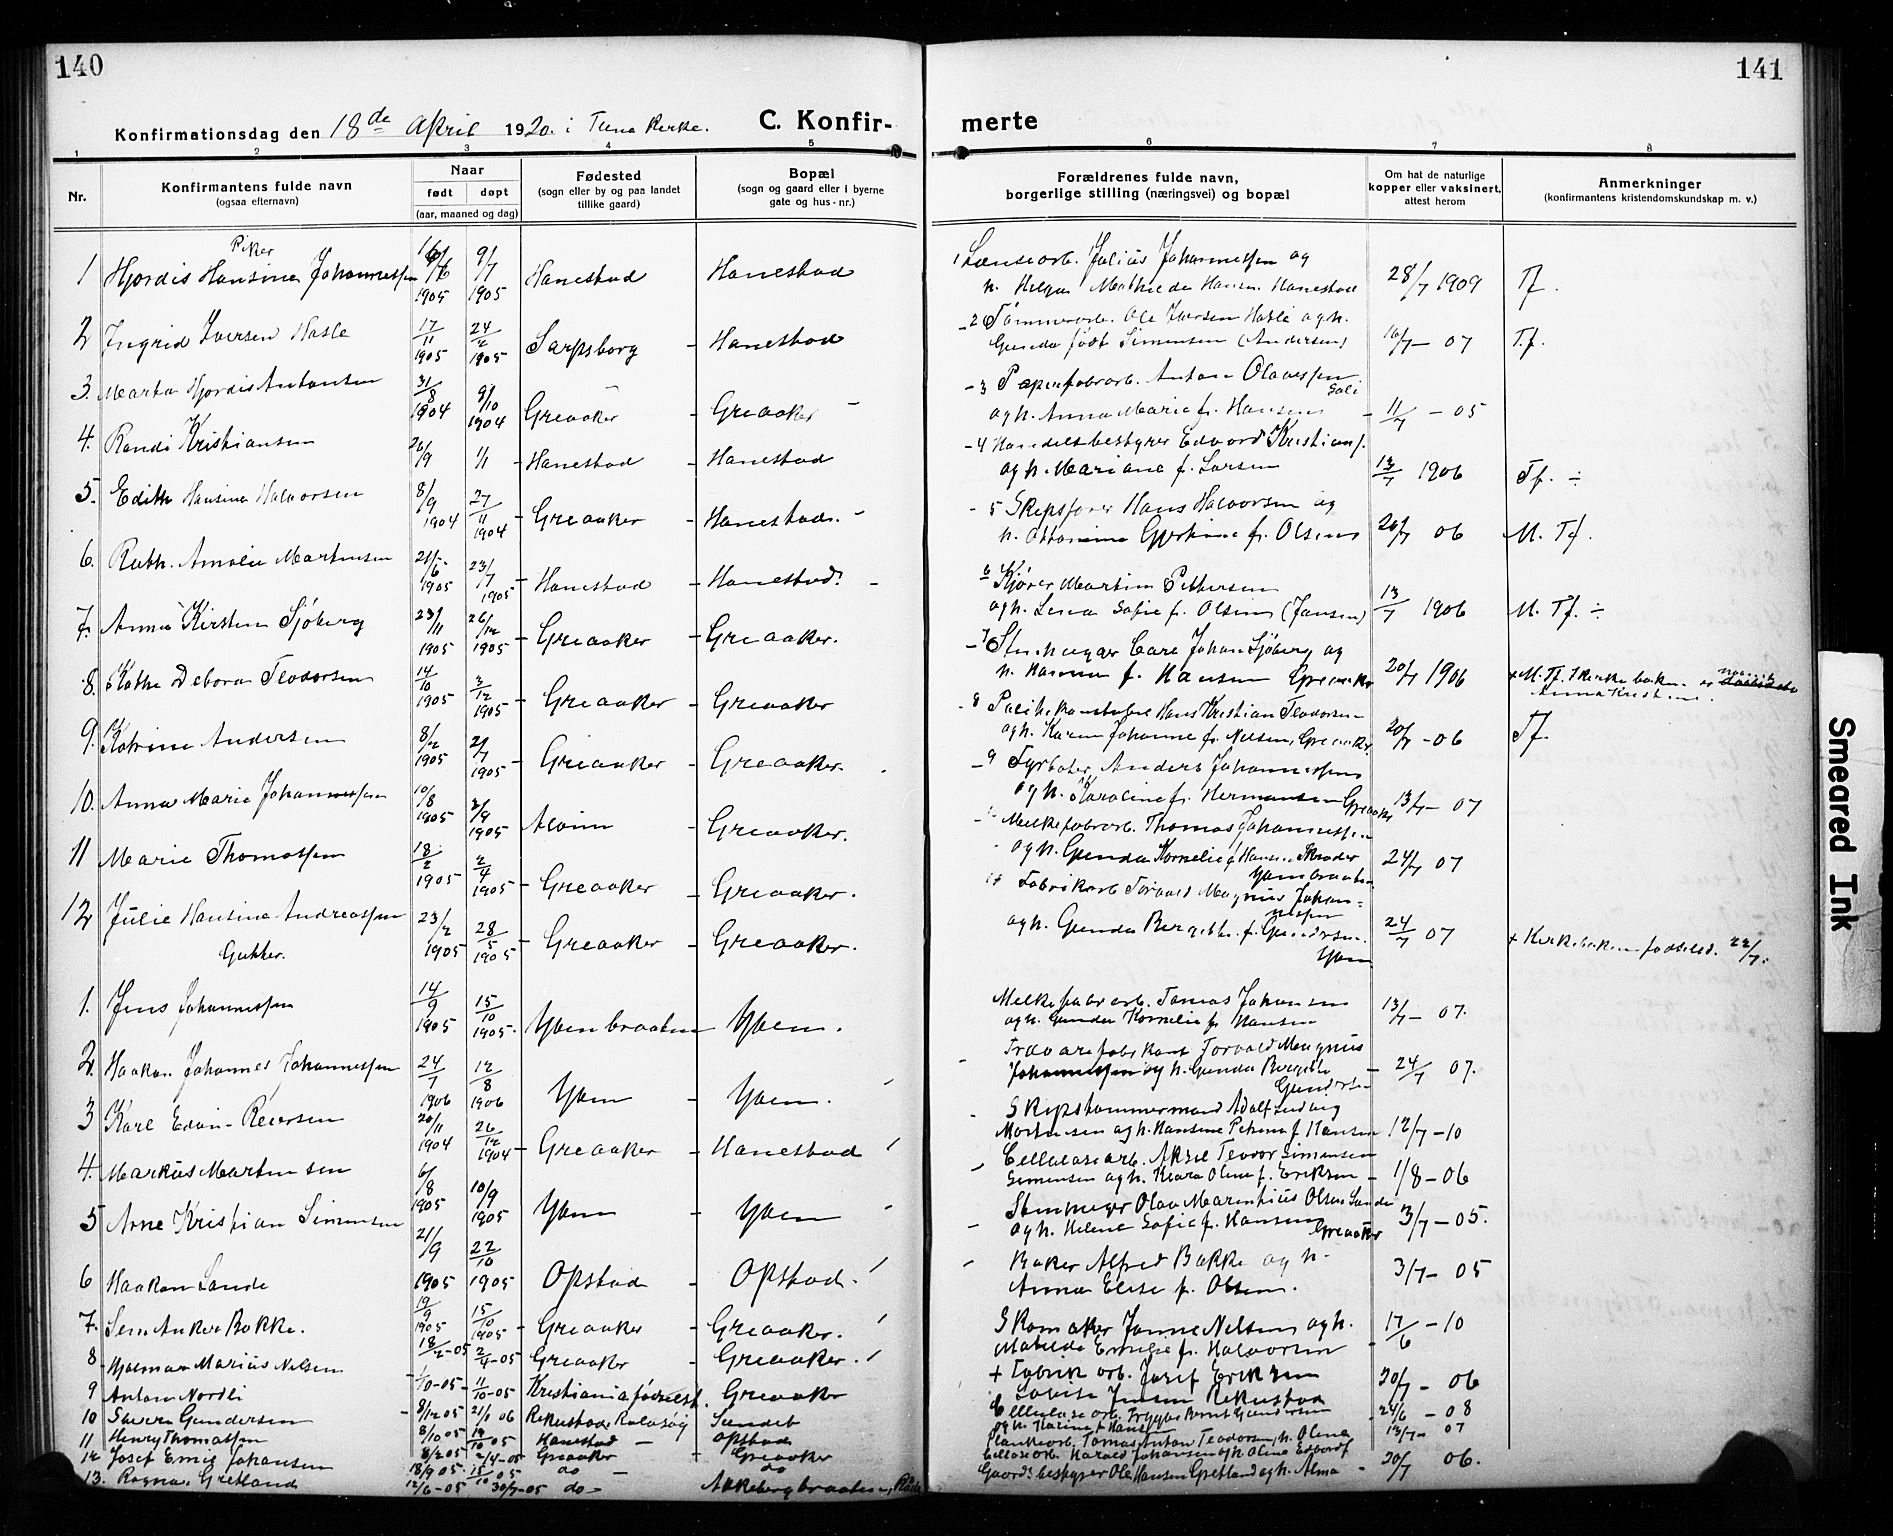 140
Konfirmationsdag den 18de April 1920. i Tune Kirke. C. Konfir-
1 2 3 4 5
Nr. Konfirmantens fulde navn (ogsaa efternavn) Naar født døpt (aar, maaned og dag) Fødested (sogn eller by og paa landet tillike gaard) Bopæl (sogn og gaard eller i byerne gate og hus-nr.)
Piker
1 Hjordis Hansine Johannessen 1905 9/7 1905 Hanestad Hanestad
2 Ingrid Iversen Hasle 17/11 1905 24/2 1905 Sarpsborg - Hanestad
3. Marta Hjordis Antonsen 31/8 1904 9/10 1904 Greaaker - Greaaker -
4. Randi Kristiansen 26/9 1/1 - Hanestad - Hanestad
5. Edith Hansine Halvorsen 8/9 1904 27/11 1904 - Greaaker - Hanestad. -
6. Ruth Amalie Martinsen 21/6 1905 23/7 1905 - Hanestad - Hanestad. -
7. Anna Kirsten Sjöberg 23/11 1905 26/12 1905 - Greaaker - Greaaker.
8. Käthe Debora Teodorsen 14/10 1905 3/12 1905 - Greaaker - Greaaker
9. Katrine Andersen 8/2 1905 2/7 1905 - Greaaker - Greaaker.
10. Anna Marie Johannessen 10/8 1905 3/9 1905 Alvim - Greaaker.
11 Marie Thomassen 18/2 1905 2/4 1905 - Greaaker - Greaaker.
12 Julie Hansine Andreassen 23/2 1905 28/5 1905 - Greaaker - Greaaker.
Gutter.
1. Jens Johannessen 14/9 1905 15/10 1905. Yvenbraaten Yven.
2. Haakon Johannes Johannessen 24/7 1906 12/8 1906 Yven - Yven.
3 Karl Edvin Reiersen 20/11 1904 26/12 1904 - Greaaker - Hanestad
4. Markus Martinsen 6/8 1905 10/9 1905 Yven - Yven
5 Arne Kristian Simensen 21/9 1905 22/10 1905 Opstad - Opstad.
6 Haakon Sande 19/9 1905 15/10 1905 - Greaaker - Greaaker.
7. Sem Anker Bakke. 18/2-05 2/4-05 Greaaker - Greaaker.
8 Hjalmar Marius Nilsen 1/10-05 11/10-05 Kristiania fødselsst. Greaaker
9 Anton Nordli 8/12 05 21/1 06 Rekustad, Rolvsøy Sundet
10 Sverre Gundersen 8/10 05 19/10 05 Hanestad - Opstad
11 Henry Thomassen 8/2 05 2/4-05 Greaaker - Greaaker
12 Josef Emil Johansen 18/9 05 15/10 05 do - do
13. Ragnar Gretland 12/6-05 30/7-05 do - Akkebergbraaten, Raade
141
merte
6 7 8
Forældrenes fulde navn, borgerlige stilling (næringsvei) og bopæl Om hat de naturlige kopper eller vaksinert, attest herom Anmerkninger (konfirmantens kristendomskundskap m. v.)
1 Lænsearb. Julius Johannessen og
h. Helga Mathilde Hansen Hanestad 28/7 1909 Tf.
- 2 Tømmerarb. Ole Iversen Hasle og h.
Gunda født Simensen (Andersen) 16/7 - 07 T.f.
- 3 Papirfabrarb. Anton Olavessen
Sali
og h. Anna Marie f. Hansen - 11/7 - 05
- 4 Handelsbestyrer Edvard Kristians.
og h. Mariane f. Larsen 13/7 1906 Tf. ÷
- 5 Skipsfører Hans Halvorsen og
h. Ottomine Gjertine f. Olsen 20/7 06 M. Tf.
6 Kjører Martin Pettersen
og h. Lina Sofie f. Olsen (Jansen) 13/7 1906 M. Tf. ÷
- 7 Stenhugger Carl Johan Sjöberg og
h. Hanna f. Hansen Greaaker 20/7 1906 + M. Tf. I kirkeboken er
Anna Kristine.
- 8 Politikonstabel Hans Kristian Teodorsen
og h. Karen Johanne f. Nilsen, Greaaker 20/7 - 06 Tf
- 9 Fyrbøter Anders Johannessen
og h. Karoline f. Hermansen Greaaker 13/7 - 07
Melkefabrarb. Thomas Johannessen
og h. Gunda Kornelie f. Hansen 24/7 07
Yvenbraaten
Fabrikarb Torvald Magnus Johan=
nessen
og h. Gunda Bergithe f. Gundersen. 24/7 07 + Kirkeboken fødselsd. 22/7.
Yven
Melkefabrarb. Tomas Johansen
og h. Gunda Kornelie f. Hansen 13/7 - 07.
Trævarefabrikant Torvald Magnus
Johannessen og h. Gunda Bergithe - 24/7 07.
Gundersen
Skipstømmermand Adolf Ludvig
Mortensen og h. Hansine Petrine f. Hansen 12/7 - 10
Cellulosearb. Aksel Teodor Simensen
Simensen og h. Klara Olena f. Eriksen - 1/8 - 06
Stenhugger Olav Marentius Olsen Sande
og h. Helene Sofie f. Hansen Greaaker 3/7 - 05.
Baker Alfred Bakke og h.
Anna Elise f. Olsen. 3/7 - 05
Skomaker Janne Nilsen og h.
Matilde Emilie f. Halvorsen - 17/6 - 10
+ Fabrik arb. Josef Eriksen
Lovise Jensen Rekustad 20/7 - 06
Cellulose arb. Trygve Bernt Gundersen 24/6 - 08
og h. Karine f. Hansen 13/7 - 07
Plankearb. Tomas Anton Teodorsen, h. Olina
Cellulosearb. Harald Johansen og h. Olina Edvardf
Gaardsbestyrer Ole Hansen Gretland og h. Alma - 20/7 06.
Smeared Ink